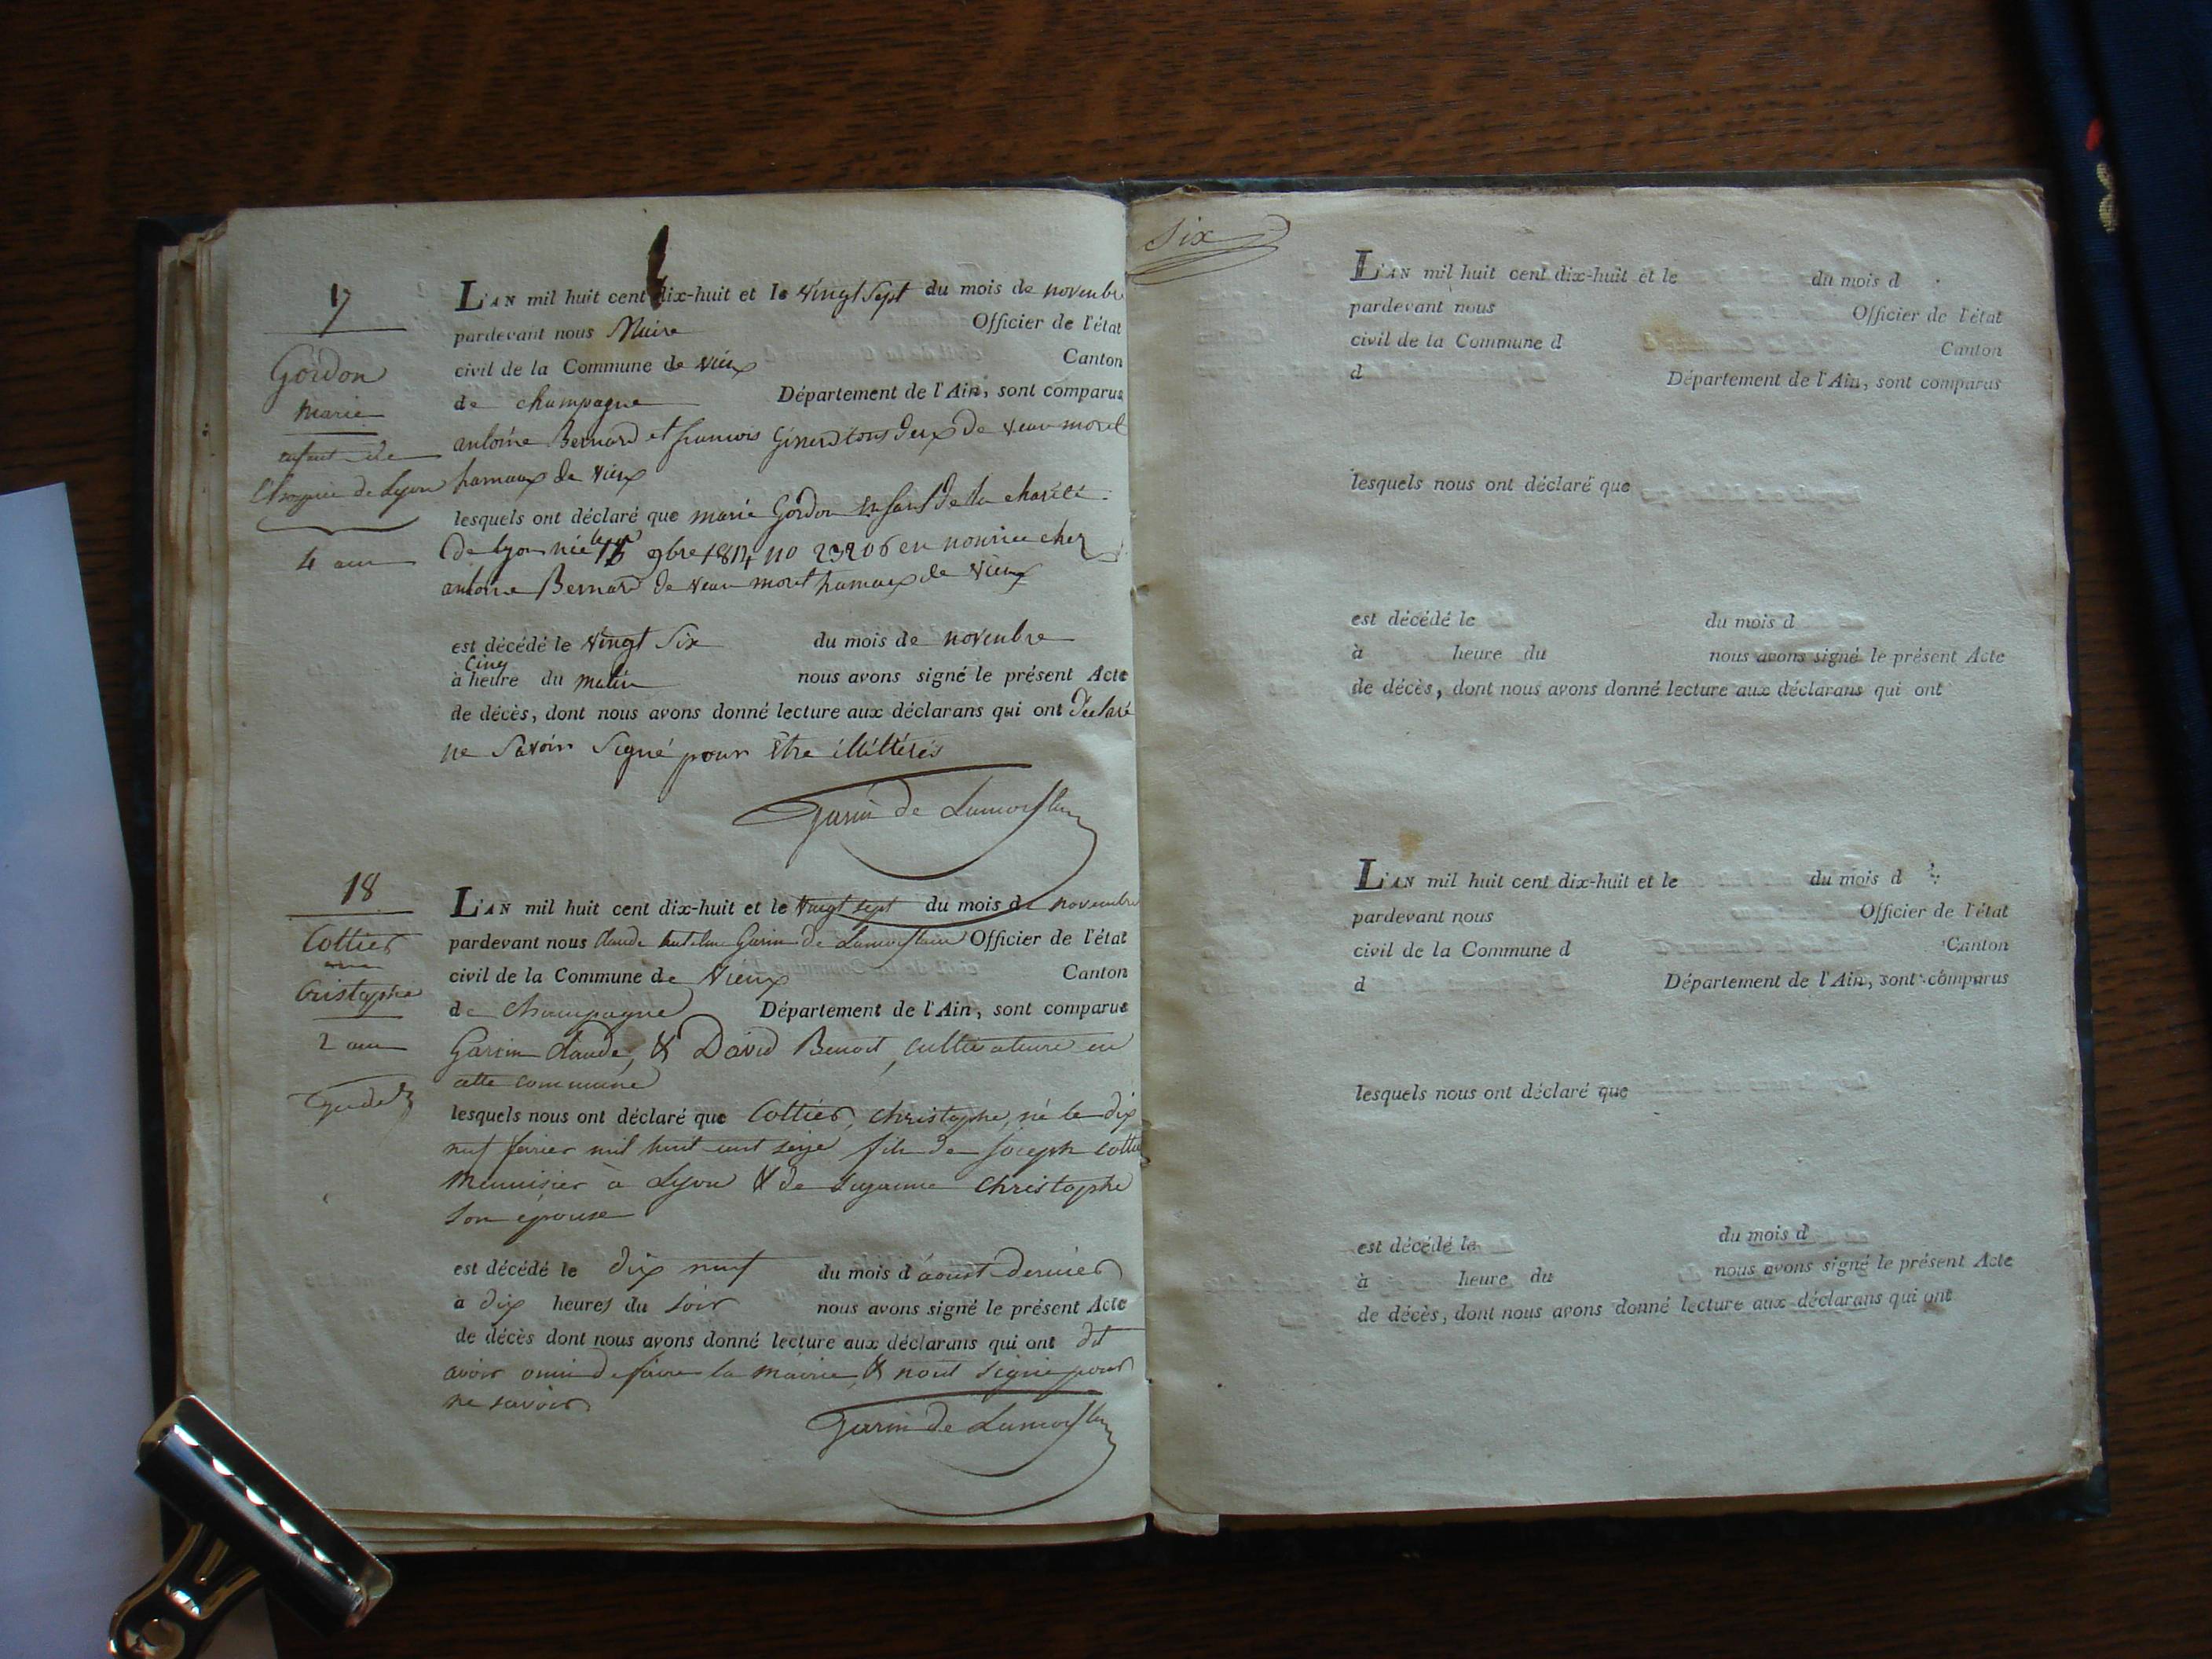 17
Gordon
Marie
enfant de
l'hospice de Lyon
4 ans
L'AN mil huit cent dix-huit et le vingt sept du mois de novembre
pardevant nous Maire Officier de l'état
civil de la Commune de vieux Canton
de champagne Département de l'Ain, sont comparus
antoine Bernard et francois Ginerd tous deux de veau morel
hamaux de vieux
lesquels ont déclaré que marie Gordon enfant de la charité
de lyon née 9bre 1814 no 23206 en nourice chez
antoine Bernard de veau moret hamaux de vieux
est décédé le vingt six du mois de novembre
cinq
à heure du matin nous avons signé le présent Acte
de décès, dont nous avons donné lecture aux déclarans qui ont déclaré
ne savoir signé pour être illitérés
Garin de Lamorflan
18
Cottier
Cristophe
2 ans
L'AN mil huit cent dix-huit et le vingt sept du mois de novembre
pardevant nous Claude Garin de Lamorflan Officier de l'état
civil de la Commune de Vieux Canton
de Champagne Département de l'Ain, sont comparus
Garin Claude, & David Benoit, cultivateurs en
cette commune
lesquels nous ont déclaré que Cottier, christophe, né le dix
neuf fevrier mil huit cent seize fils de joseph cottier
Menuisier à Lyon & de Suzanne Christophe
son epouse
est décédé le dix neuf du mois d'aoust dernier
à dix heures du soir nous avons signé le présent Acte
de décès dont nous avons donné lecture aux déclarans qui ont dit
avoir omis de faire la mairie, & n'ont signé pour
ne savoir
Garin de Lamorflan
Six
L'AN mil huit cent dix-huit et le du mois d
pardevant nous Officier de l'état
civil de la Commune d Canton
d Département de l'Ain, sont comparus
lesquels nous ont déclaré que
est décédé le du mois d
à heure du nous avons signé le présent Acte
de décès, dont nous avons donné lecture aux déclarans qui ont
L'AN mil huit cent dix-huit et le du mois d
pardevant nous Officier de l'état
civil de la Commune d Canton
d Département de l'Ain, sont comparus
lesquels nous ont déclaré que
est décédé le du mois d
à heure du nous avons signé le présent Acte
de décès, dont nous avons donné lecture aux déclarans qui ont